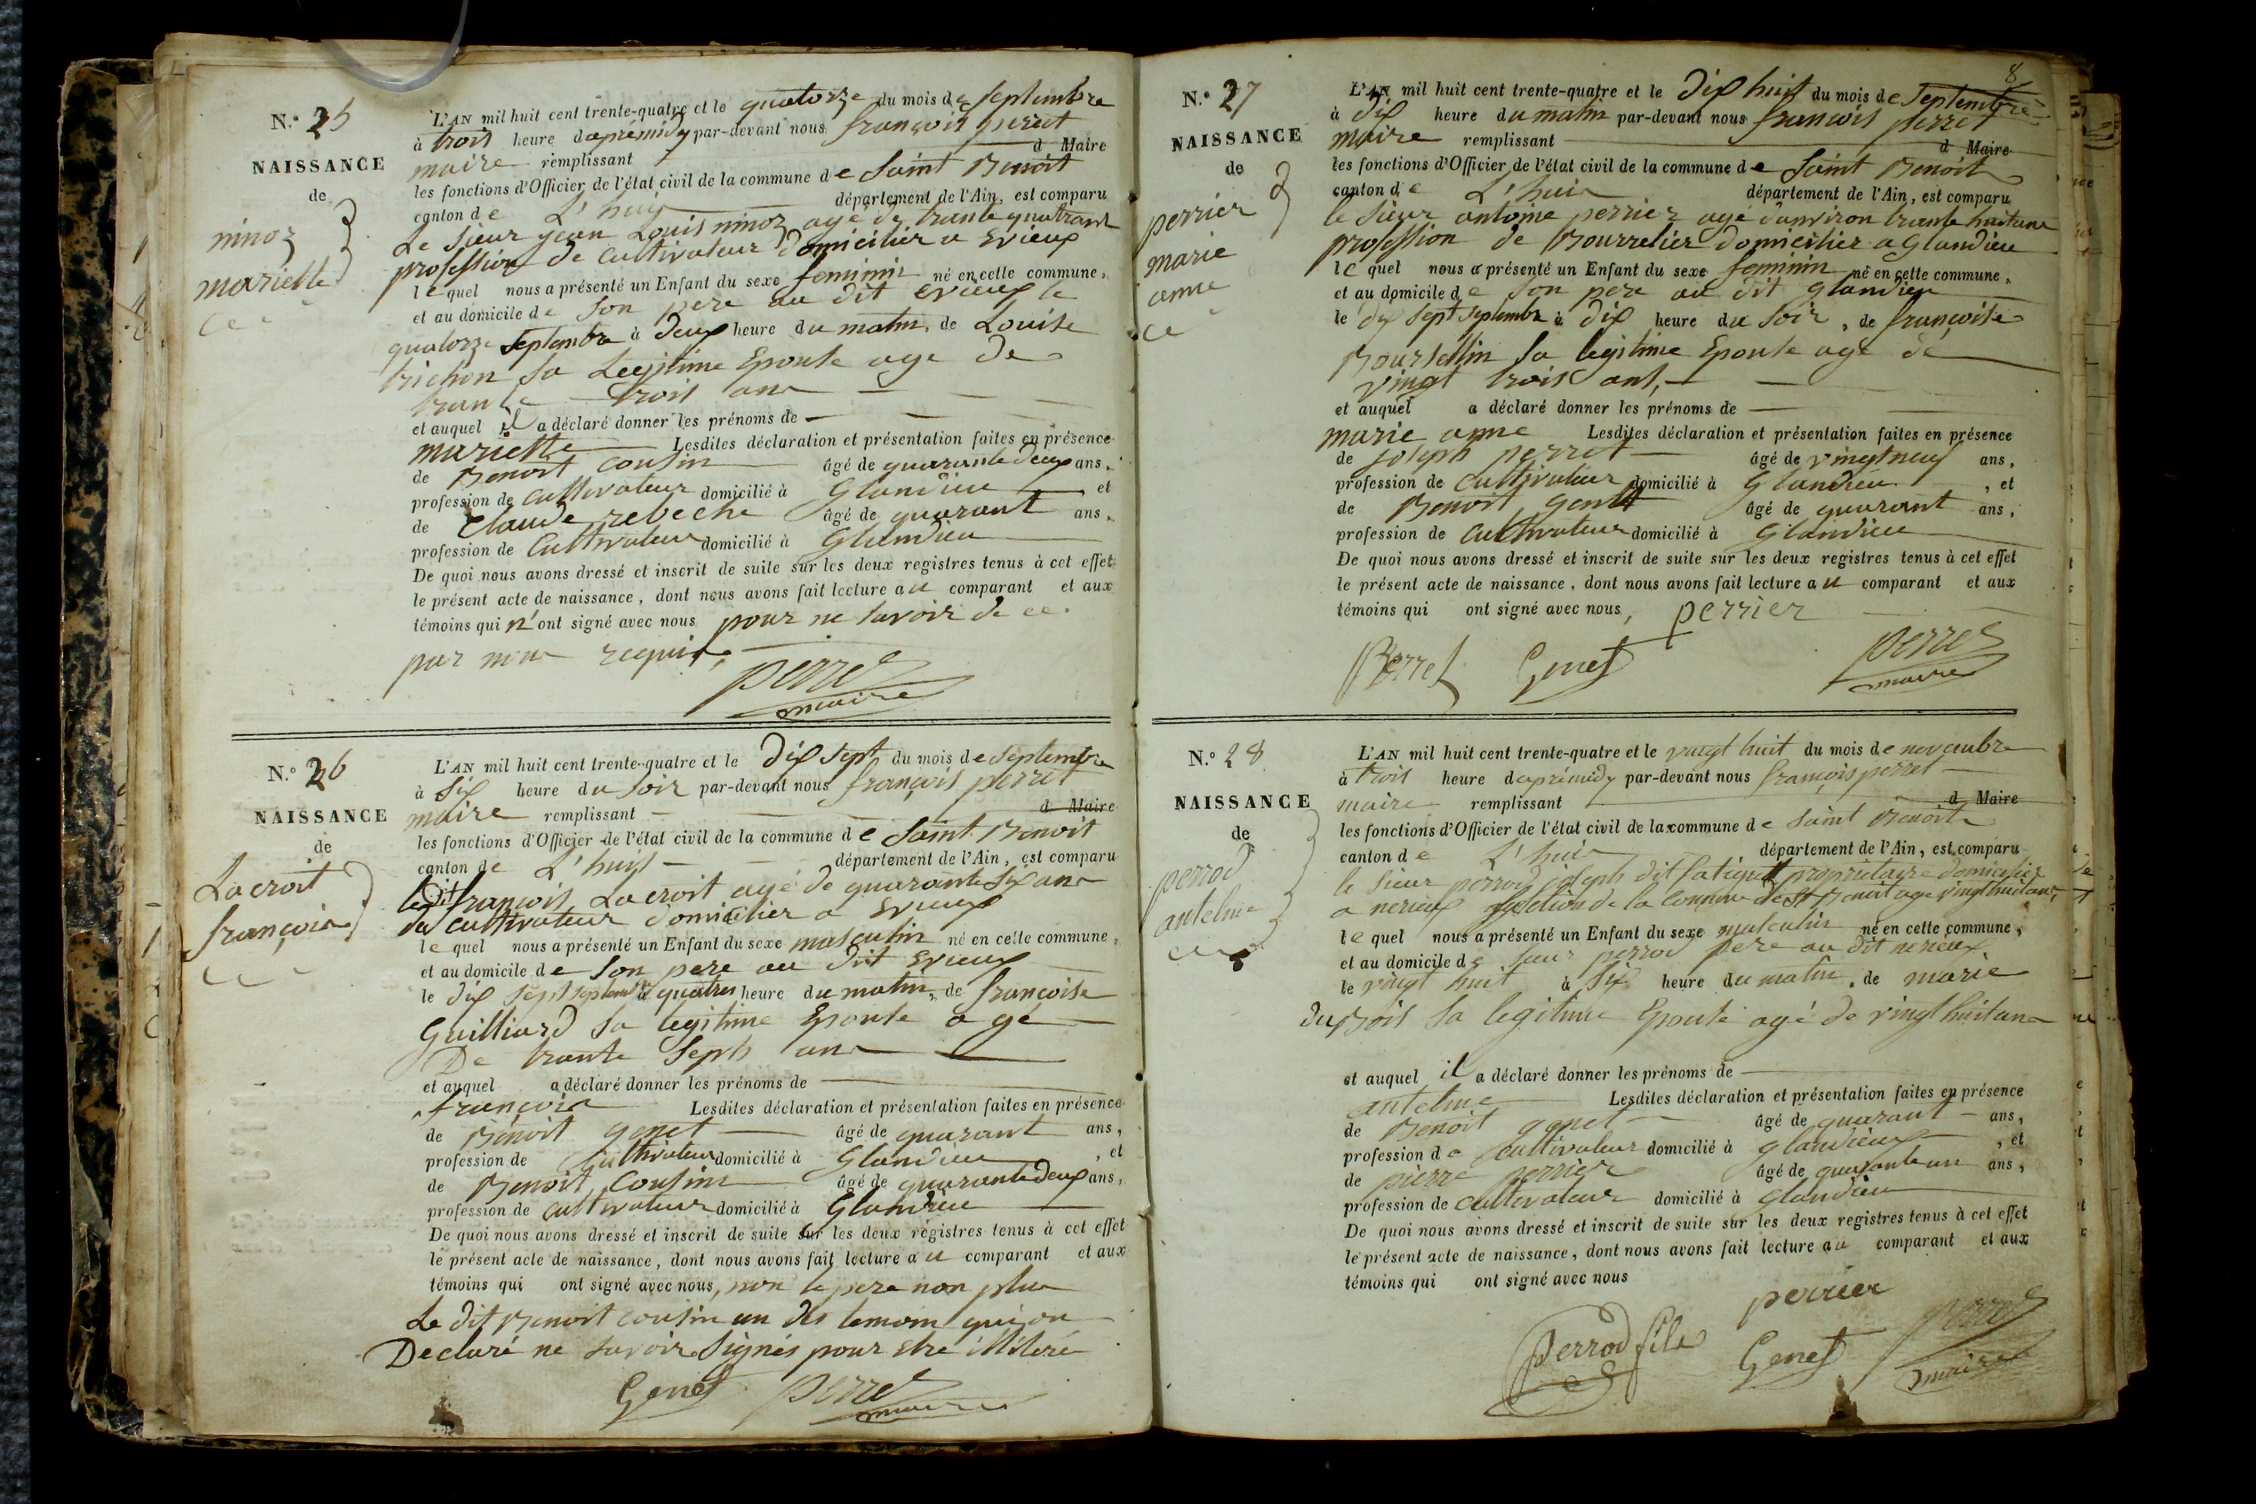 N.° 25
NAISSANCE
de
ninoz
mariette
L'AN mil huit cent trente-quatre et le quatorze du mois de septembre
à trois heure d'aprémidy par-devant nous françois perret
maire remplissant d Maire
les fonctions d'Officier de l'état civil de la commune de Saint Benoit
canton de L'huis département de l'Ain, est comparu
Le Sieur jean Louis ninoz agé de trante quatrans
profession de cultivateur domicilier a Evieux
lequel nous a présenté un Enfant du sexe feminin né en cette commune,
et au domicile de son pere au dit evieux le
quatorze septembre à deux heure du matin, de Louise
trichon sa Legitime Epouse age de
trante trois ans
et auquel il a déclaré donner les prénoms de
mariette Lesdites déclaration et présentation faites en présence
de Benoit cousin âgé de quarante deux ans,
profession de cultivateur domicilié à Glandieu et
de Claude rebeche âgé de quarant ans,
profession de Cultivateur domicilié à Glandieu
De quoi nous avons dressé et inscrit de suite sur les deux registres tenus à cet effet
le présent acte de naissance, dont nous avons fait lecture au comparant et aux
témoins qui n'ont signé avec nous pour ne savoir de ce
par nous requis,
perret
maire
N.° 26
NAISSANCE
de
Lacroit
françois
L'AN mil huit cent trente-quatre et le Dix sept du mois de septembre
à six heure du soir par-devant nous françois perret
maire remplissant d Maire
les fonctions d'Officier de l'état civil de la commune de Saint Benoit
canton de L'huis département de l'Ain, est comparu
françois Lacroit agé de quarante six ans
cultivateur domicilier a Evieux
lequel nous a présenté un Enfant du sexe masculin né en cette commune,
et au domicile de son pere au dit Evieux
le dix sept septembre à quatres heure du matin, de françoise
Guilliard sa legitime Epouse agé
De trante Septs ans
et auquel a déclaré donner les prénoms de
françois Lesdites déclaration et présentation faites en présence
de Benoit genet âgé de quarant ans,
profession de Cultivateur domicilié à Glandieu, et
de Benoit Cousin âgé de quarante deux ans,
profession de cultivateur domicilié à Glandieu
De quoi nous avons dressé et inscrit de suite sur les deux régistres tenus à cet effet
le présent acte de naissance, dont nous avons fait lecture au comparant et aux
témoins qui ont signé avec nous, non le pere non plus
Le dit Benoit cousin un des temoin qui on
Declaré ne savoir Signés pour etre illiteré
Genet perret
maire
8
N.° 27
NAISSANCE
de
perrier
marie
anne
L'AN mil huit cent trente-quatre et le Dix huit du mois de Septembre
à dix heure du matin par-devant nous françois perret
maire remplissant d Maire
les fonctions d'Officier de l'état civil de la commune de Saint Benoit
canton de L'huis département de l'Ain, est comparu
le sieur antoine perrier agé d'anviron trante huitans
profession de Bourrelier domicilier a Glandieu
lequel nous a présenté un Enfant du sexe feminin né en cette commune,
et au domicile de son pere au dit glandieu
le dix sept septembre à dix heure du soir, de françoise
Boursellin sa legitime Epouse agé de
vingt trois ans,
et auquel a déclaré donner les prénoms de
marie anne Lesdites déclaration et présentation faites en présence
de joseph perret âgé de vingtneuf ans,
profession de Cultivateur domicilié à Glandieu, et
de Benoit genet âgé de quarant ans,
profession de Cultivateur domicilié à Glandieu
De quoi nous avons dressé et inscrit de suite sur les deux registres tenus à cet effet
le présent acte de naissance, dont nous avons fait lecture au comparant et aux
témoins qui ont signé avec nous, perrier
Perret Genet perret
maire
N.° 28
NAISSANCE
de
perrod
antelme
L'AN mil huit cent trente-quatre et le vingt huit du mois de novembre
à trois heure d'aprémidy par-devant nous françois perret
maire remplissant d Maire
les fonctions d'Officier de l'état civil de la commune de saint Benoit
canton de L'huis département de l'Ain, est comparu
le Sieur perrod joseph dit fatiguet proprietaire domicilier
a nerieux section de la commune de St Benoit age vingt huitans
lequel nous a présenté un Enfant du sexe masculin né en cette commune,
et au domicile de sieur perrod pere au dit nerieux
le vingt huit à six heure du matin, de marie
duBois sa legitime Epouse agé de vingt huitans
et auquel il a déclaré donner les prénoms de
antelme Lesdites déclaration et présentation faites en présence
de Benoit genet âgé de quarant ans,
profession de cultivateur domicilié à glandieux, et
de pierre perrier âgé de quarante un ans,
profession de cultivateur domicilié à glandieu
De quoi nous avons dressé et inscrit de suite sur les deux registres tenus à cet effet
le présent acte de naissance, dont nous avons fait lecture au comparant et aux
témoins qui ont signé avec nous
perrier
Perrod fils Genet perret
maire